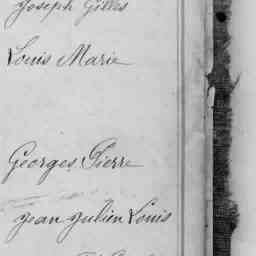 Joseph Gilles
Louis Marie
Georges Pierre
Jean Julien Louis